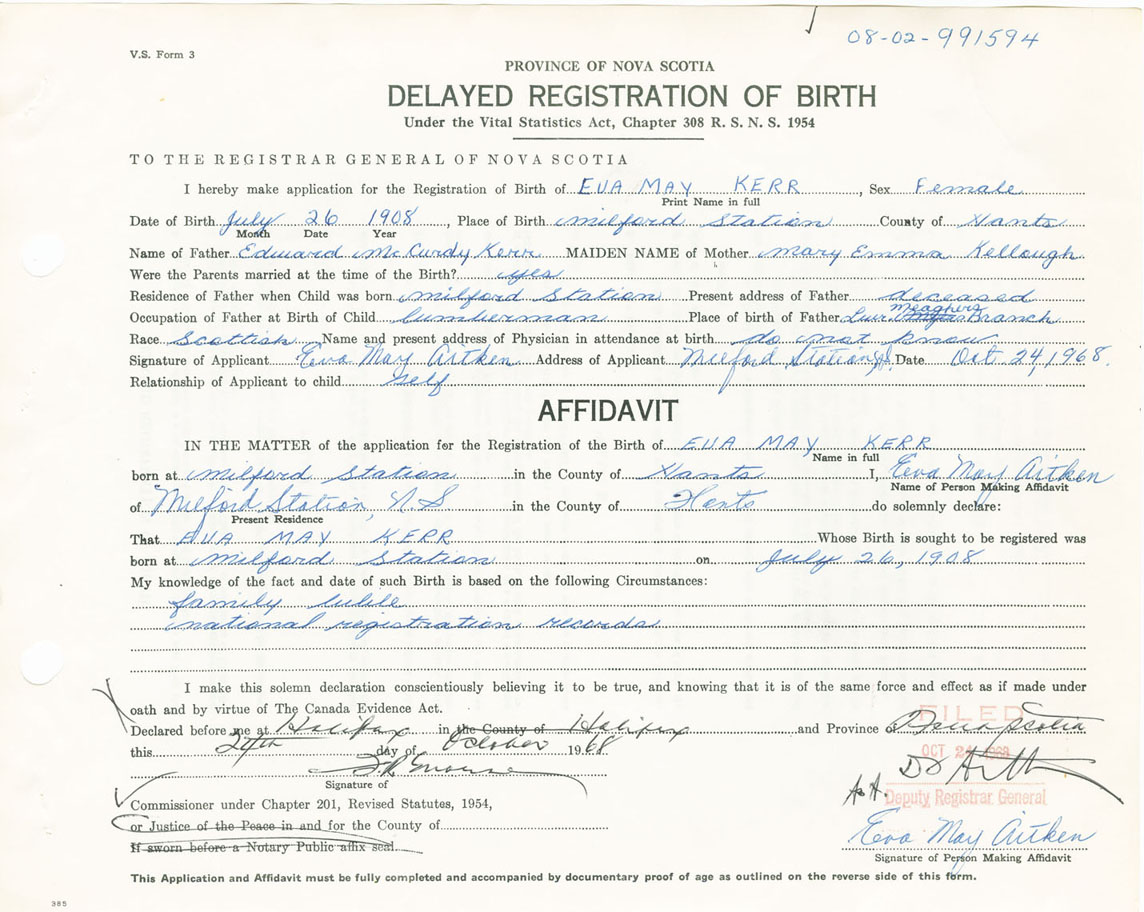 08-02-991594
V.S. Form 3
PROVINCE OF NOVA SCOTIA
DELAYED REGISTRATION OF BIRTH
Under the Vital Statistics Act, Chapter 308 R. S. N. S. 1954
TO THE REGISTRAR GENERAL OF NOVA SCOTIA
I hereby make application for the Registration of Birth of EVA MAY KERR, Sex Female
Print Name in full
Date of Birth July 26 1908, Place of Birth Milford Station County of Hants
Month Date Year
Name of Father Edward McCurdy Kerr MAIDEN NAME of Mother Mary Emma Kellough
Were the Parents married at the time of the Birth? yes
Residence of Father when Child was born Milford Station Present address of Father deceased
Occupation of Father at Birth of Child lumberman Place of birth of Father Meaghers Branch
Race Scottish Name and present address of Physician in attendance at birth do not know
Signature of Applicant Eva May Aitken Address of Applicant Milford Station Date Oct 24, 1968.
Relationship of Applicant to child Self
AFFIDAVIT
IN THE MATTER of the application for the Registration of the Birth of EVA MAY KERR
Name in full
born at Milford Station in the County of Hants I, Eva May Aitken
Name of Person Making Affidavit
of Milford Station, N.S in the County of Hants do solemnly declare:
Present Residence
That EVA MAY KERR Whose Birth is sought to be registered was
born at Milford Station on July 26, 1908
My knowledge of the fact and date of such Birth is based on the following Circumstances:
family bible
national registration records
I make this solemn declaration conscientiously believing it to be true, and knowing that it is of the same force and effect as if made under
oath and by virtue of The Canada Evidence Act.
FILED
Declared before me at Halifax in the County of Halifax and Province of Nova Scotia
this 24th day of October 1968
OCT 24 1968
Signature of
Commissioner under Chapter 201, Revised Statutes, 1954,
Deputy Registrar General
or Justice of the Peace in and for the County of
Eva May Aitken
If sworn before a Notary Public affix seal.
Signature of Person Making Affidavit
This Application and Affidavit must be fully completed and accompanied by documentary proof of age as outlined on the reverse side of this form.
385